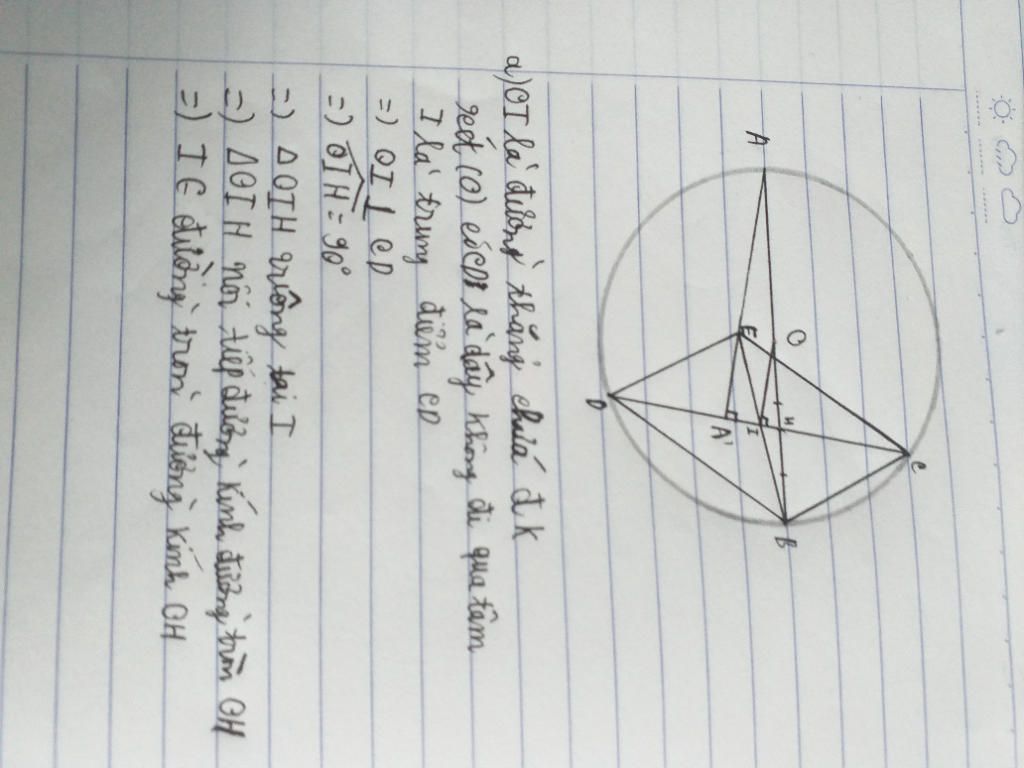 A
O
H
C
E
I
A'
B
D
a) OI là đường thẳng chứa đ k
xét (O) có CD là dây không đi qua tâm
I là trung điểm CD
=) OI ⊥ CD
=) OIH = 90°
=) Δ OIH vuông tại I
=) Δ OIH nội tiếp đường kính đường tròn OH
=) I ∈ đường tròn đường kính OH